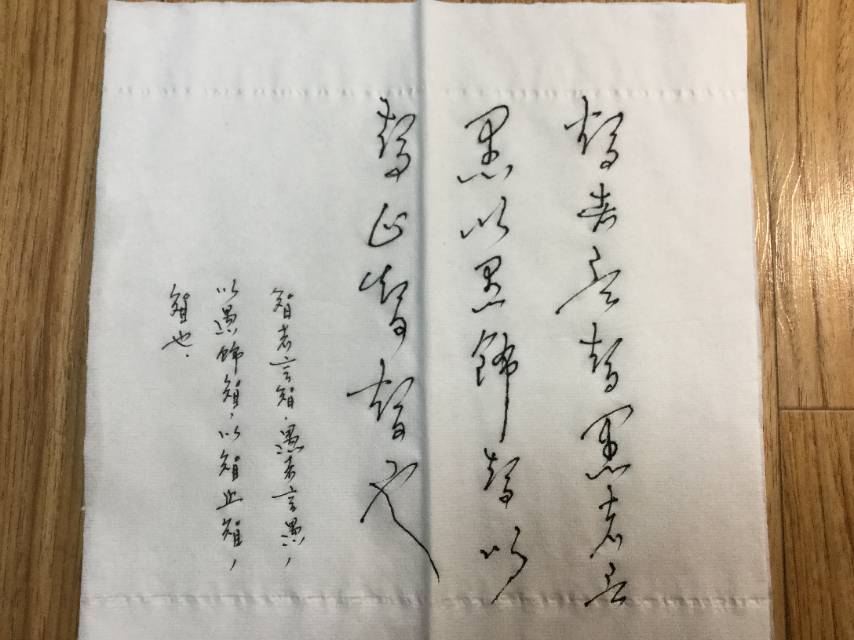 智者言智愚者言
愚以愚飾智以
智止智智也
智者言智，愚者言愚，
以愚飾智，以智止智，
智也.